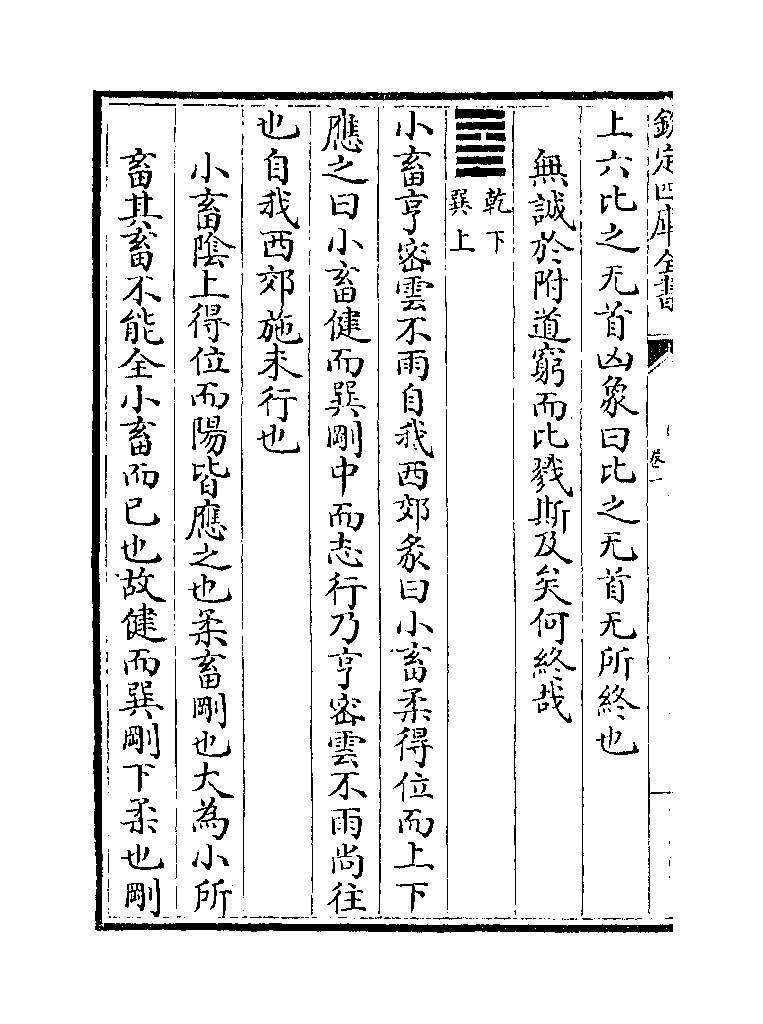 欽定四庫全書
卷一
上六比之无首凶象曰比之无首无所終也
無誠於附道窮而比戮斯及矣何終哉
乾下
巽上
小畜亨密雲不雨自我西郊彖曰小畜柔得位而上下
應之曰小畜健而巽剛中而志行乃亨密雲不雨尚往
也自我西郊施未行也
小畜陰上得位而陽皆應之也柔畜剛也大為小所
畜其畜不能全小畜而已也故健而巽剛下柔也剛